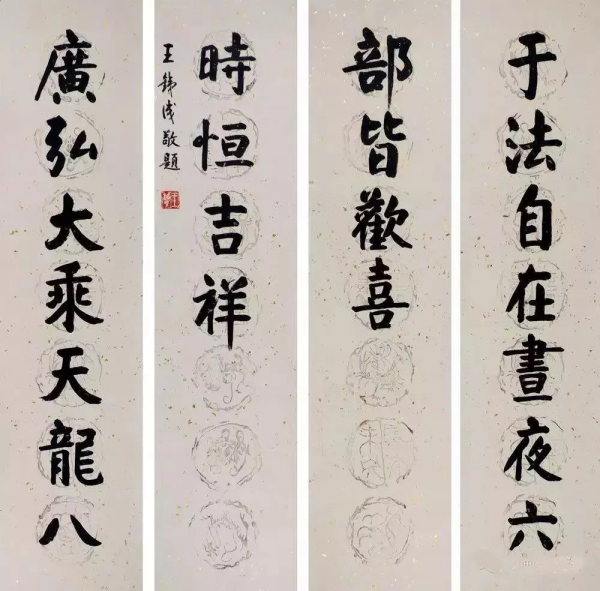 于法自在晝夜六
部皆歡喜
時恒吉祥
王敬題
廣弘大乘天龍八